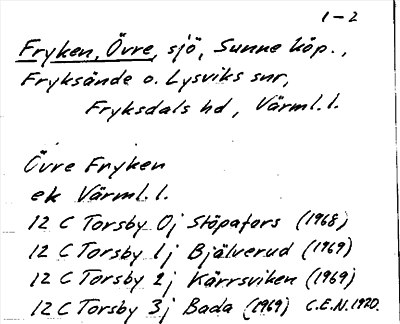 1-2
Fryken, Övre, sjö, Sunne köp.,
Fryksände o. Lysviks snr,
Fryksdals hd, Värml. l.
Övre Fryken
ek Värml. l.
12 C Torsby 0j Stöpafors (1968)
12 C Torsby 1j Bjälverud (1969)
12 C Torsby 2j Kärrsviken (1969)
12 C Torsby 3j Bada (1969) C.E.N. 1970.